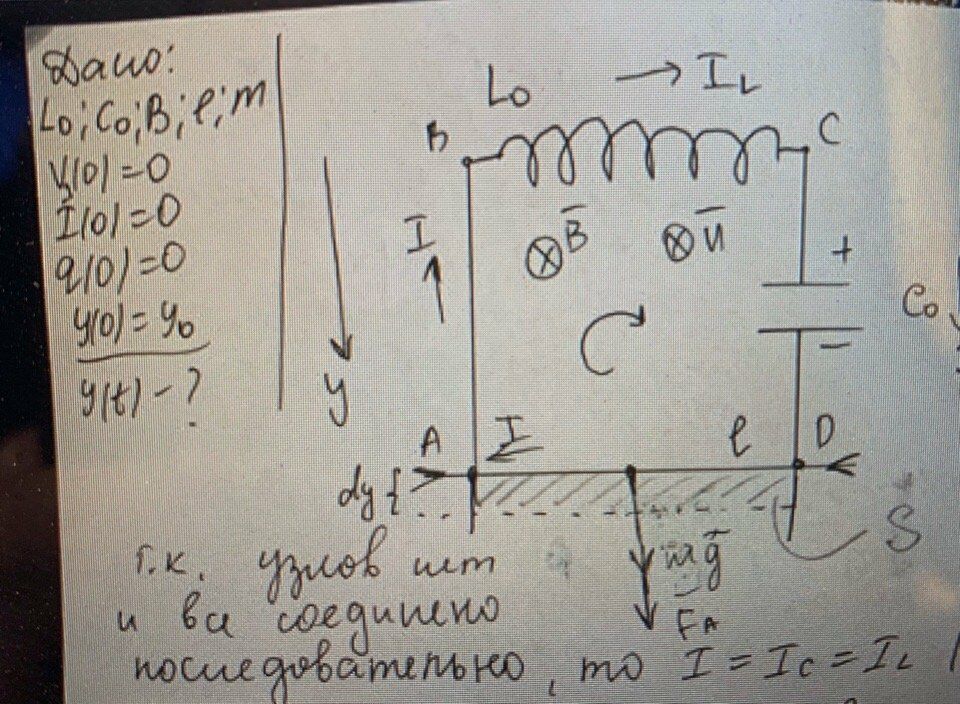 Дано:
L₀; C₀; B; ℓ; m
V(0)=0
I(0)=0
q(0)=0
y(0)=y₀
y(t) - ?
y
L₀ → I_L
B
C
I
⊗ B̄
⊗ n̄
+
C₀
−
A
I
ℓ
D
dy {
S
mḡ
F_A
т.к. узлов нет
и все соединено
последовательно, то I = I_C = I_L